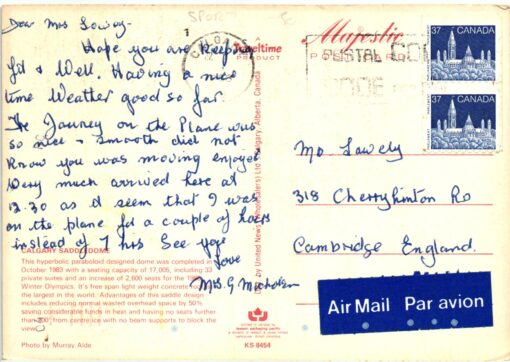 Dear Mrs
Hope you are keeping
fit & Well. Having a nice
time Weather good so far.
The Journey on the Plane was
so nice & smooth did not
know you was moving enjoyed
very much arrived here at
12.30 as it seem that I was
on the plane for a couple of hours
instead of 7 hrs See you
Love
Mrs. G
CALGARY SADDLEDOME
This hyperbolic paraboloid designed dome was completed in
October 1983 with a seating capacity of 17,005, including 33
private suites and an increase of 2,600 seats for the 1988
Winter Olympics. It's free span light weight concrete roof is
the largest in the world. Advantages of this saddle design
includes reducing normal wasted overhead space by 50%
saving considerable funds in heat and having no seats further
than 200' from centre ice with no beam supports to block the
view.
Photo by Murray Alde
Majestic
Traveltime
PRODUCT
POSTAL CODE
KS-8454
CANADA
37
CANADA
37
Mo Lawely
318 Cherryhinton Rd
Cambridge England.
Air Mail Par avion